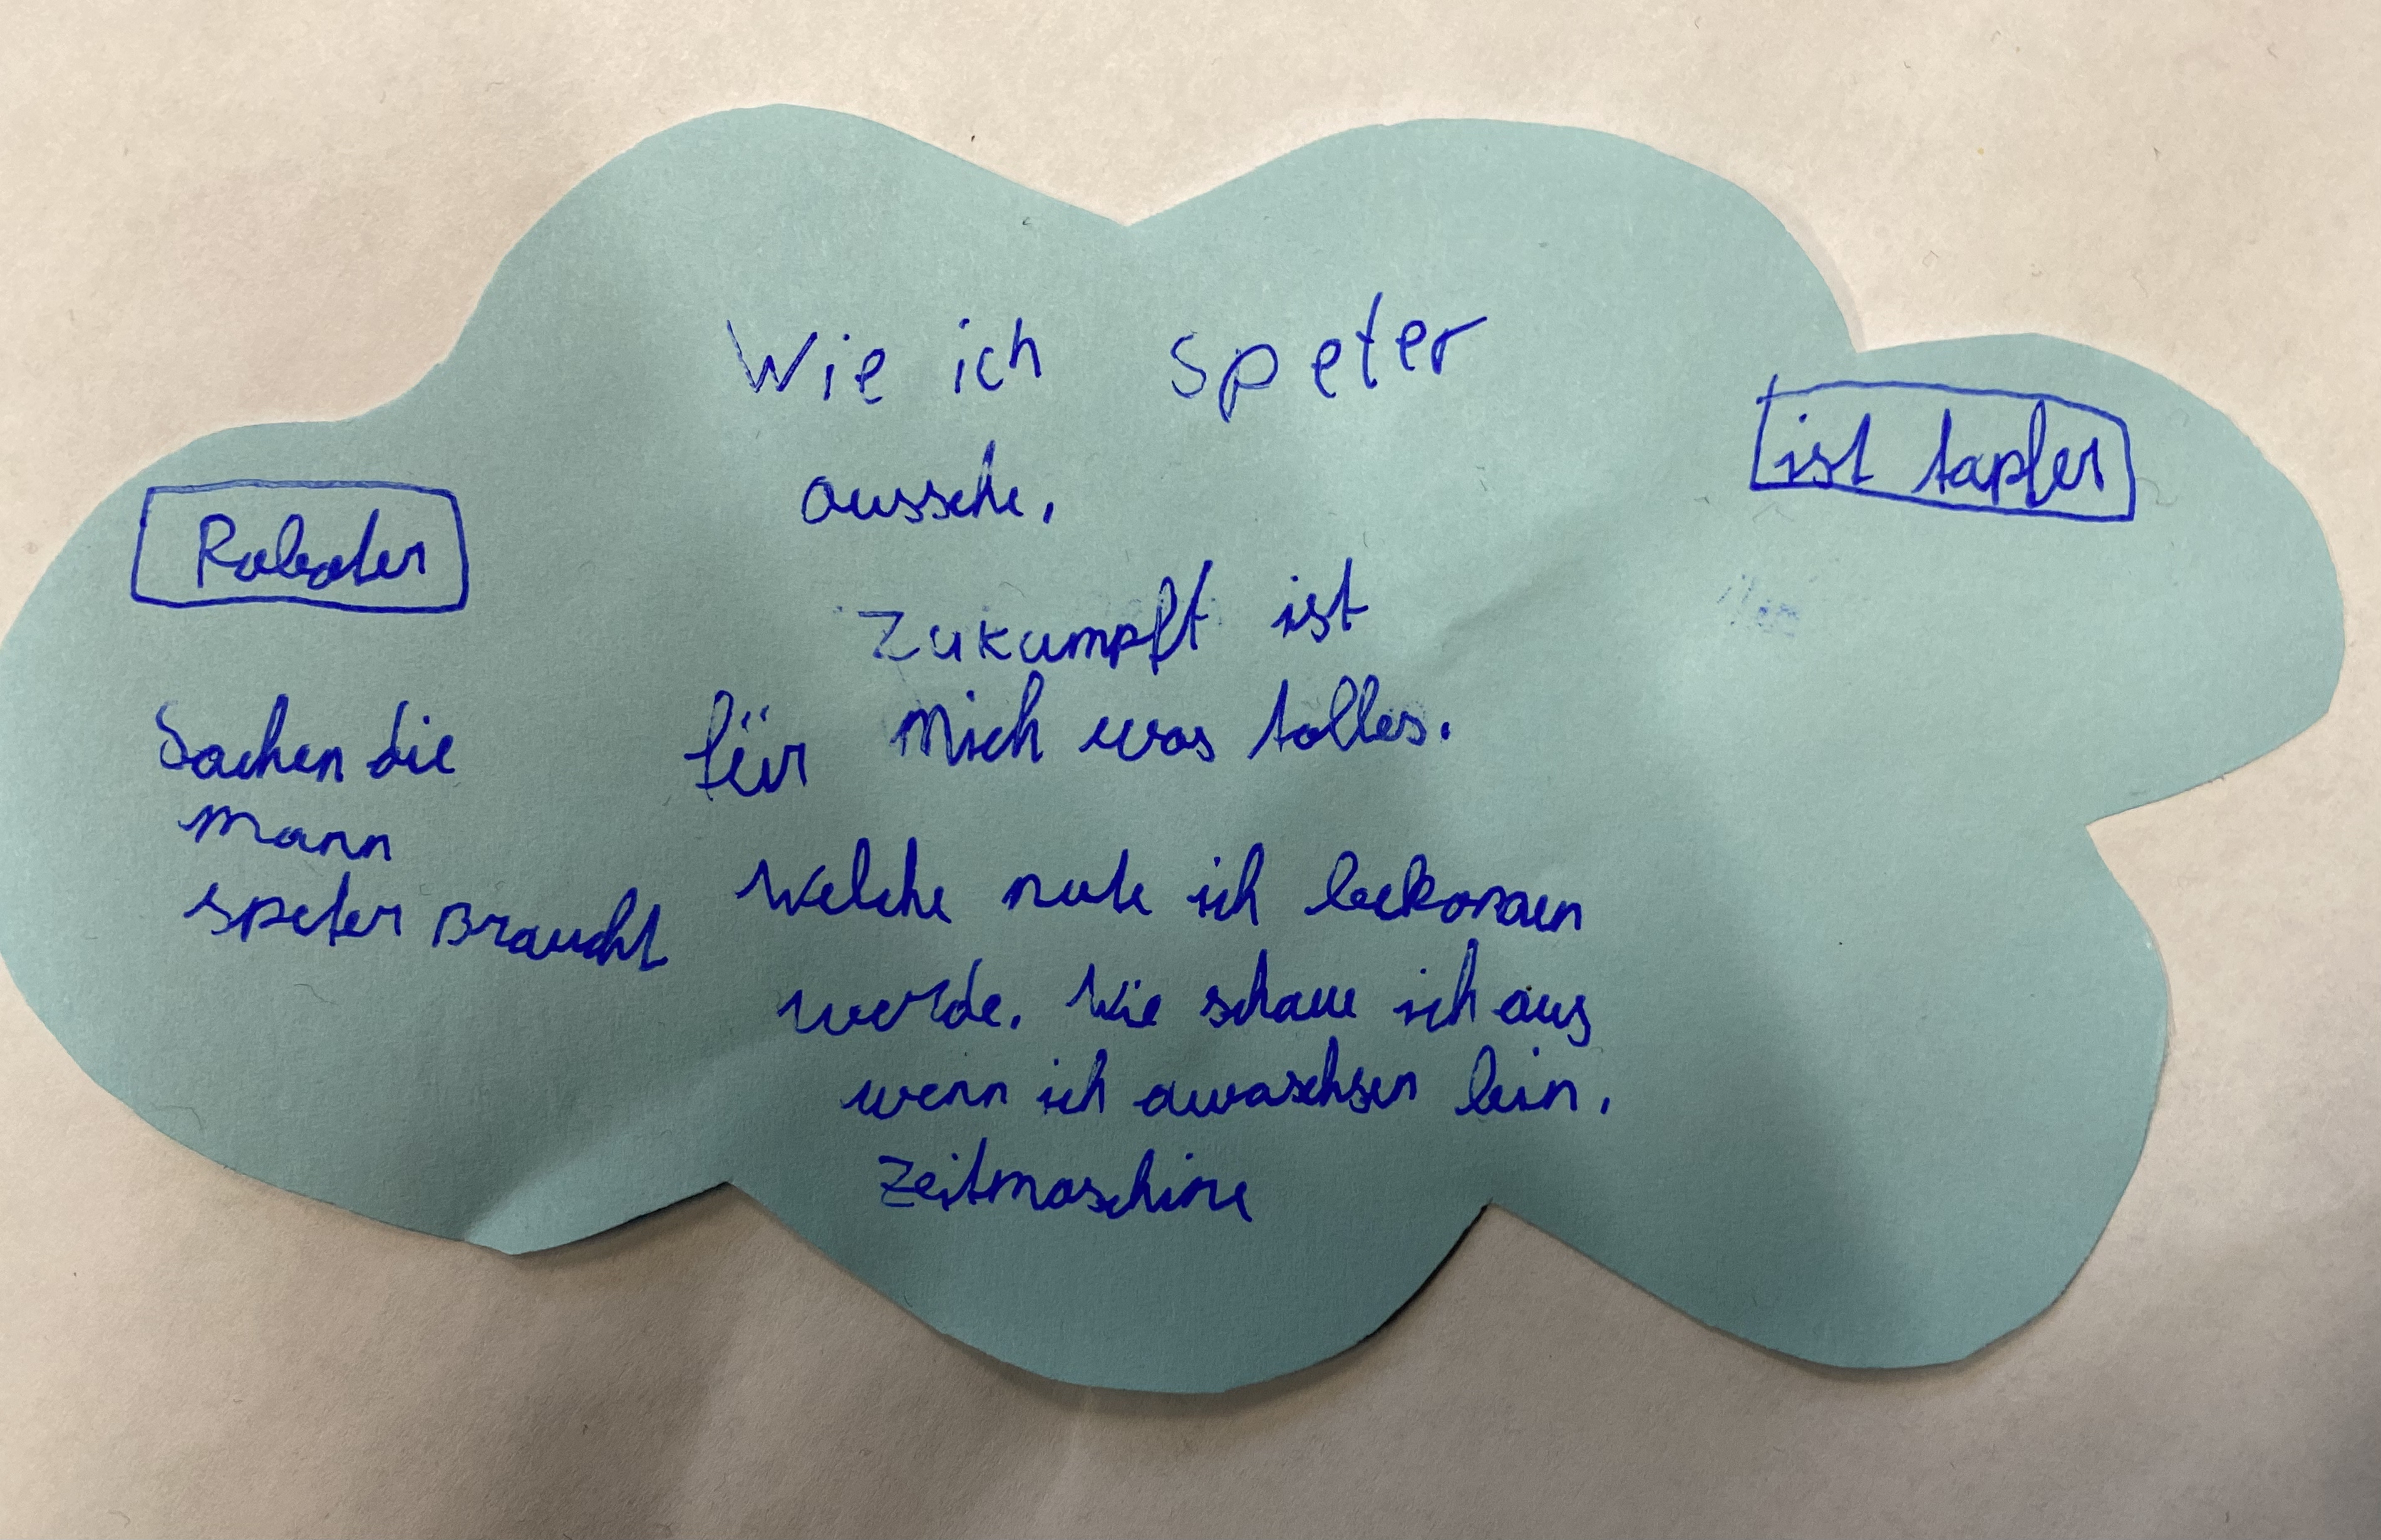 Wie ich speter
aussehe.
ist tapfer
Roboter
Zukumpft ist
für Mich was tolles.
Sachen die
mann
speter Braucht
Welche note ich bekomen
werde. Wie schaue ich aus
wenn ich awaschsen bin.
Zeitmaschine